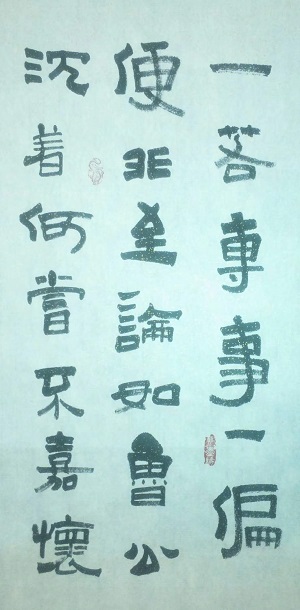 一若專事一偏
便非至論如魯公
沈着何嘗不嘉懷